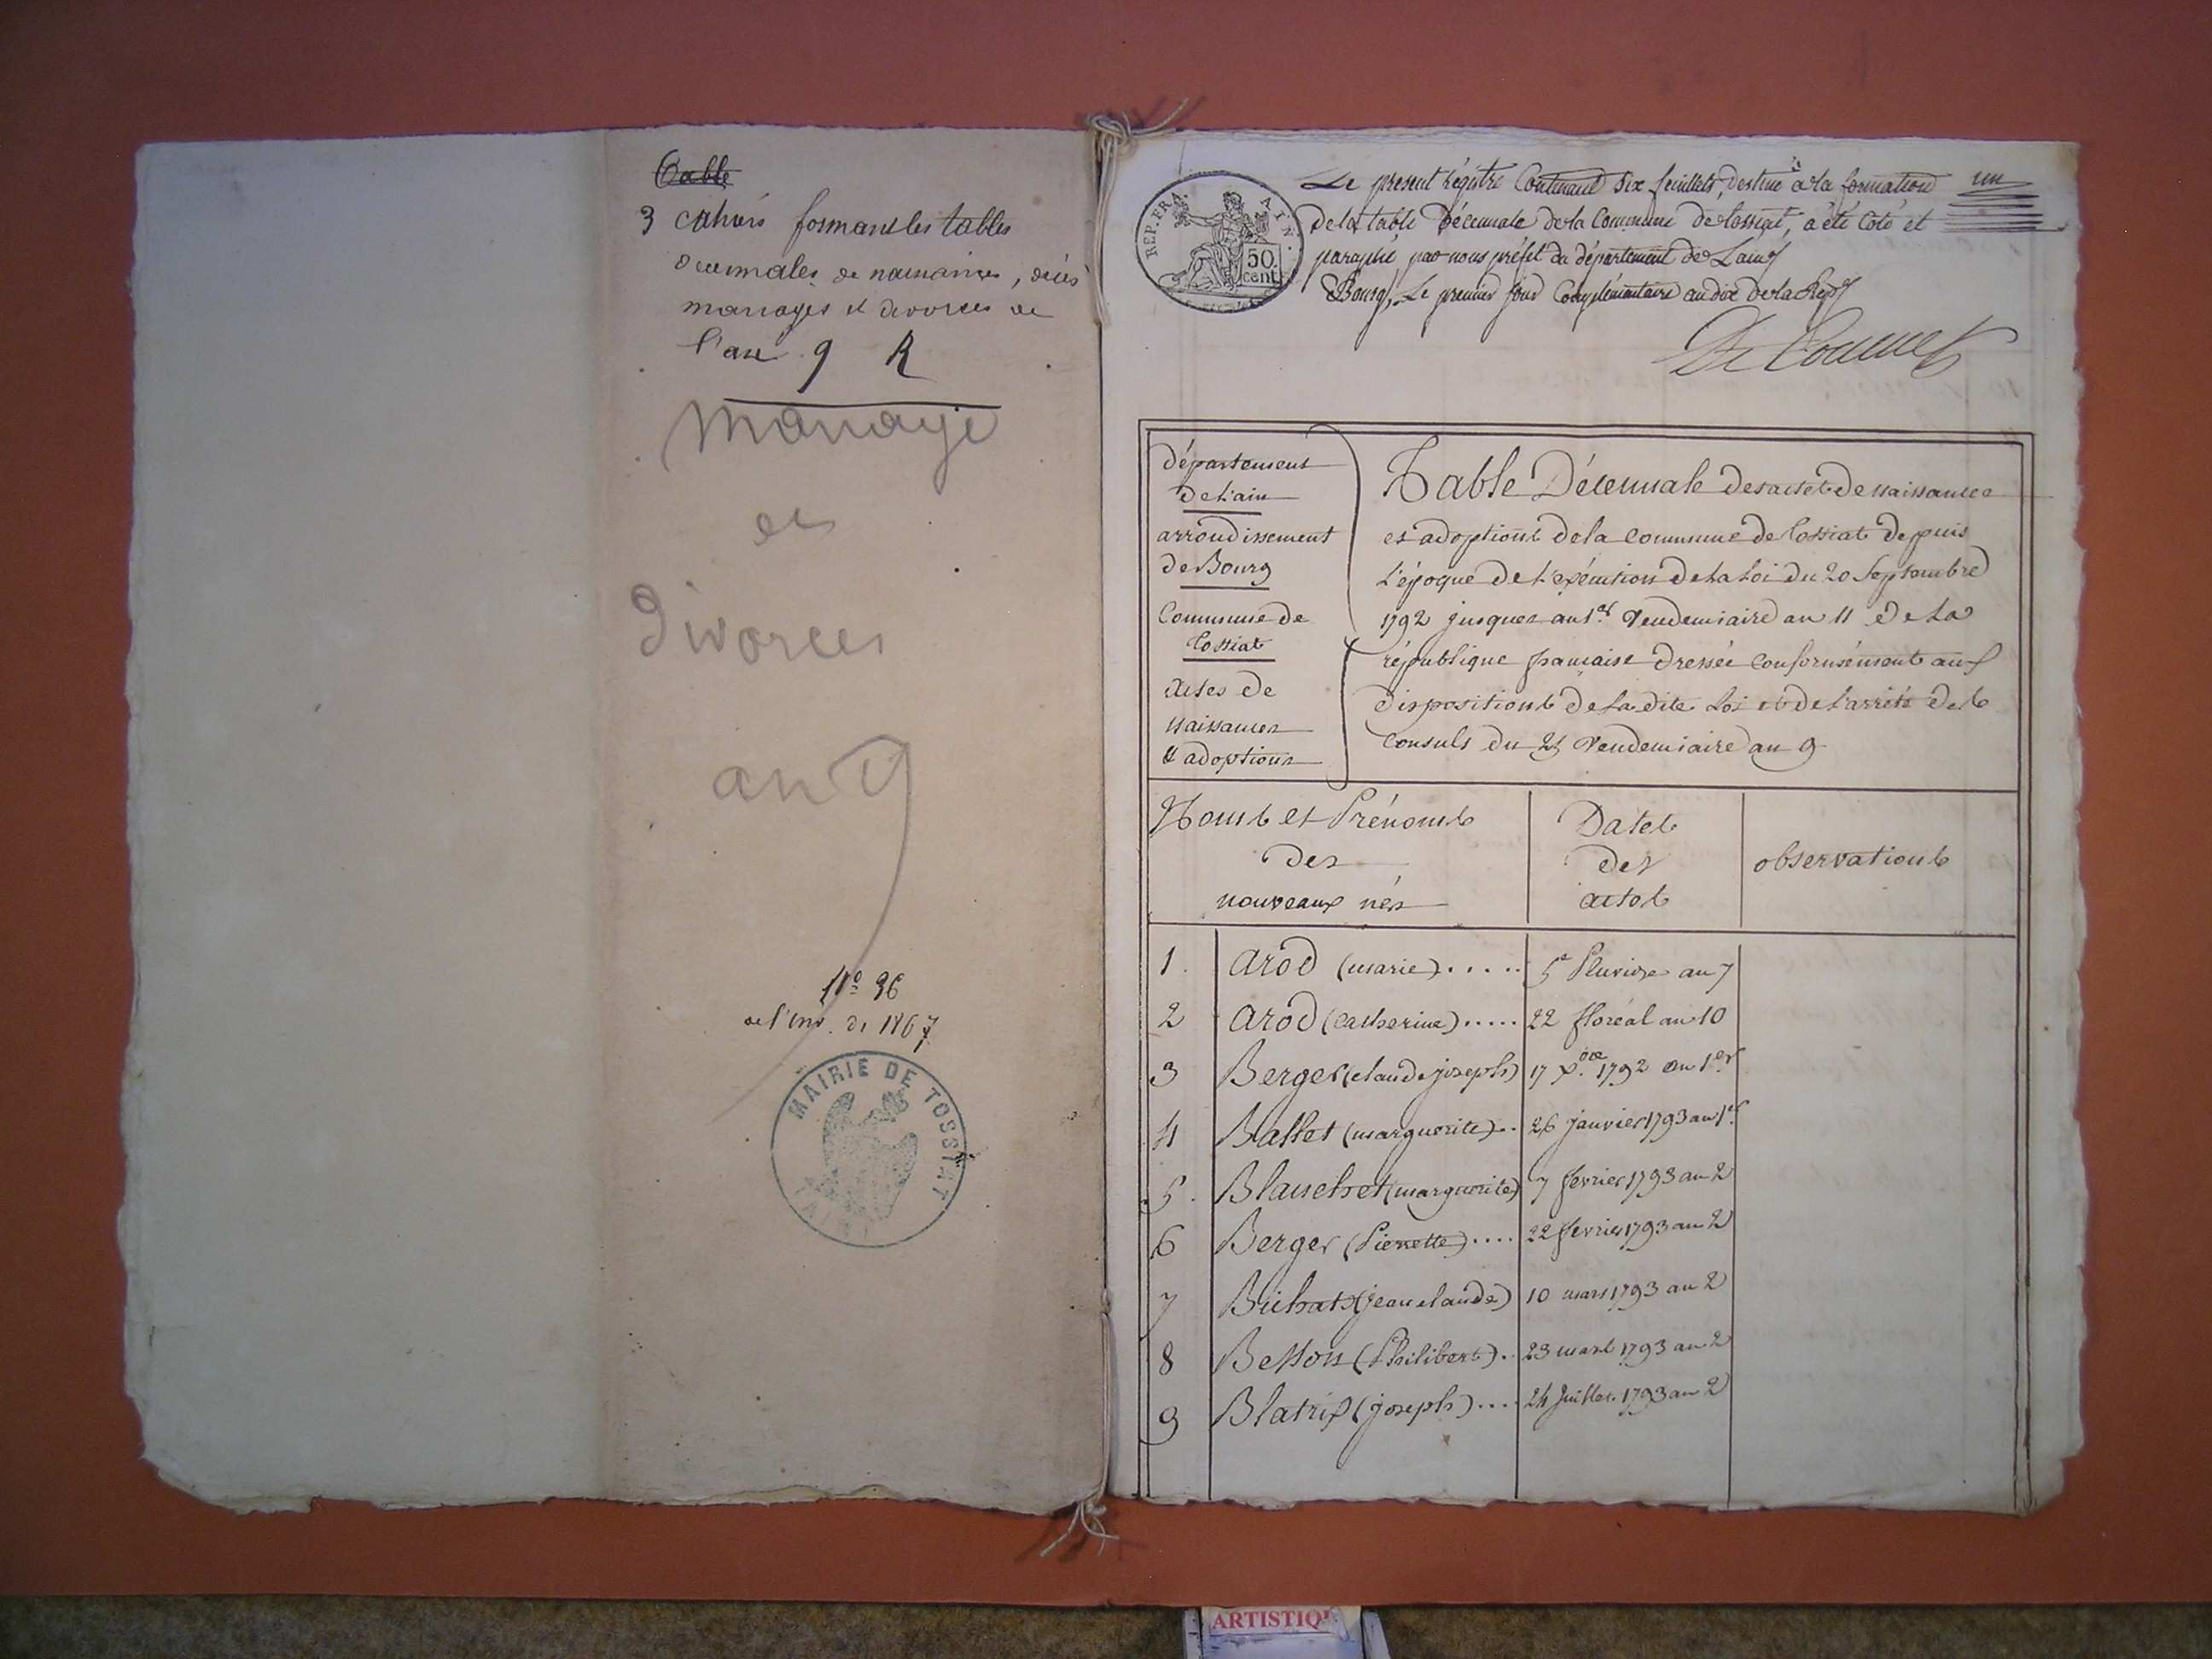 Table
3 cahiers formant les tables
décennales de naissances, décès
mariages et divorces de
l'an 9 R
Mariage
et
Divorces
an 9
N° 36
de l'inv. de 1867
MAIRIE DE TOSSIAT
AIN
REP. FRA. ATN.
50 cent
un
Le present régistre Contenant Six feuillets, destiné à la formation
de la table Décennale de la Commune de tossiat, a été Coté et
paraphé par nous préfet du département de L'ain
Bourg, Le premier jour Complémentaire an dix de la Rep
Département
De L'ain
arrondissement
de Bourg
Commune de
tossiat
Actes de
naissances
& adoptions
Table Décennale des actes de naissance
et adoptions de la commune de tossiat depuis
L'époque de L'exécution de La Loi du 20 Septembre
1792 jusques au 1er Vendemiaire an 11 de La
république française dressée conformément aux
dispositions de La dite Loi et de L'arrêté des
Consuls du 25 Vendemiaire an 9
Noms et Prénoms
des
nouveaux nés
Dates
des
actes
observations
1. arod (marie)..... 5e Pluviose an 7
2 arod (catherine)..... 22 floréal an 10
3 Berger (claude joseph) 17 xbre 1792 an 1er
4 Ballet (marguerite).. 26 janvier 1793 an 1er
5. Blanchet (marguerite) 7 fevrier 1793 an 2
6 Berger (Pierrette).... 22 fevrier 1793 an 2
7 Bichat (jean claude) 10 mars 1793 an 2
8 Besson (Philibert).. 23 mars 1793 an 2
9 Blatrix (joseph).... 24 juillet 1793 an 2
ARTISTIQ